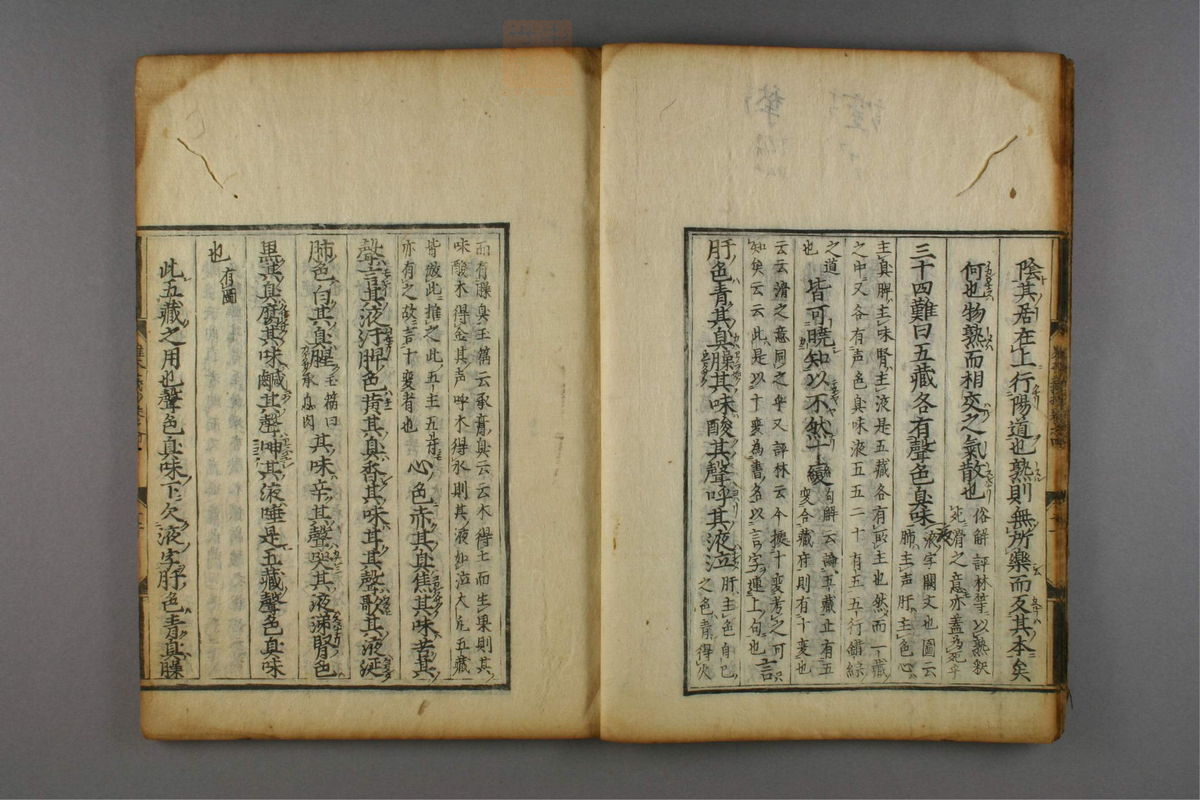 陰其居在上行陽道也熟則無所樂而反其本矣
何也物熟而相交之氣散也
俗解評林等以熟釈
死滑之意亦蓋為死乎
三十四難曰五藏各有聲色臭味
液字闕文也圖云
肺主声肝主色心
主臭脾主味腎主液是五藏各有所主也然而一藏
之中又各有声色臭味液五五二十有五五行錯綜
之道
也
皆可曉知以不然十變
句解云論五藏止有五
変合藏府則有十変也
云云滑之意同之乎又評林云今按十変考之可
知矣云云此是以十変為書名以言字連上句也
言
肝色青其臭臊其味酸其聲呼其液泣
肝主色自已
之色青得火
而有臊臭玉篇云承膏臭云云木得土而生果則其
味酸木得金其声呼木得水則其液如泣大凡五藏
皆倣此推之此五主五
亦有之故言十変者也
心色赤其臭焦其味苦其
聲言其液汗脾色黄其臭香其味甘其聲歌其液涎
肺色白其臭腥
玉篇曰
承息肉
其味辛其聲哭其液涕腎色
黒其臭腐其味鹹其聲呻其液唾是五藏聲色臭味
也
有圖
此五藏之用也聲色臭味下欠液字肝色青臭臊